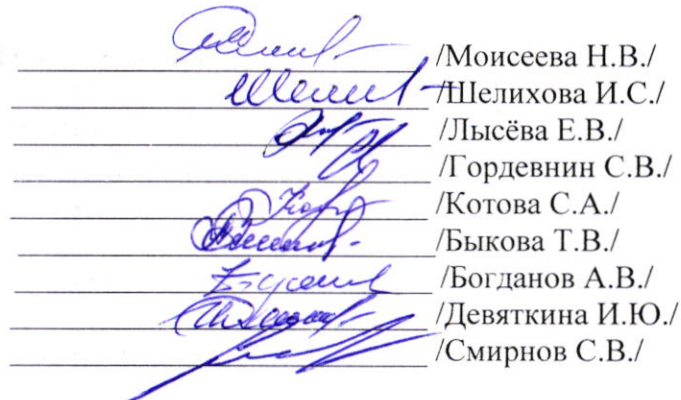 /Моисеева Н.В./
/Шелихова И.С./
/Лысёва Е.В./
/Гордевнин С.В./
/Котова С.А./
/Быкова Т.В./
/Богданов А.В./
/Девяткина И.Ю./
/Смирнов С.В./